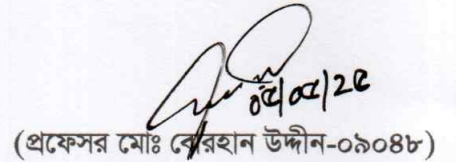 ০৫/০৫/২৫
(প্রফেসর মোঃ বোরহান উদ্দীন-০৯০৪৮)